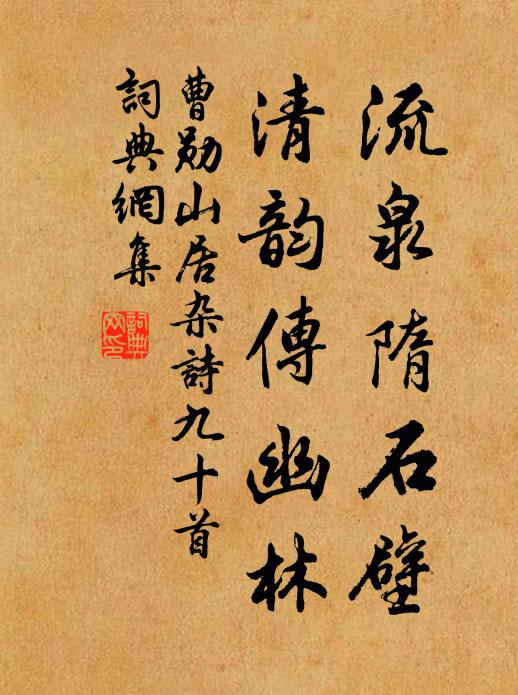 流泉隋石壁
清韵傳幽林
曹勋山居杂詩九十首
詞典網集
詞典
网印